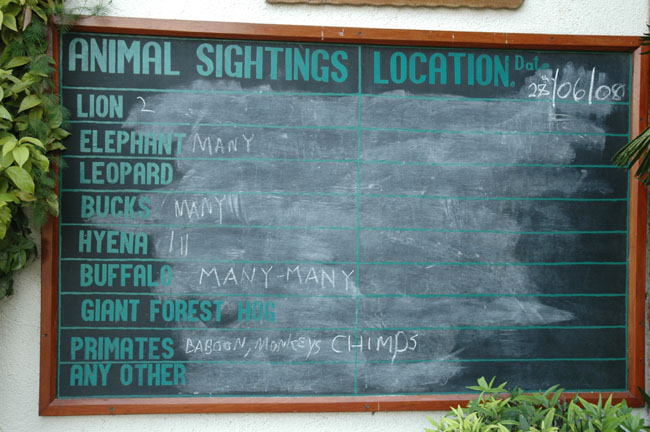 ANIMAL SIGHTINGS LOCATION. Date
28th/06/08
LION 2
ELEPHANT MANY
LEOPARD
BUCKS MANY!!!
HYENA III
BUFFALO MANY-MANY
GIANT FOREST HOG
PRIMATES BABOON, MONKEYS CHIMPS
ANY OTHER